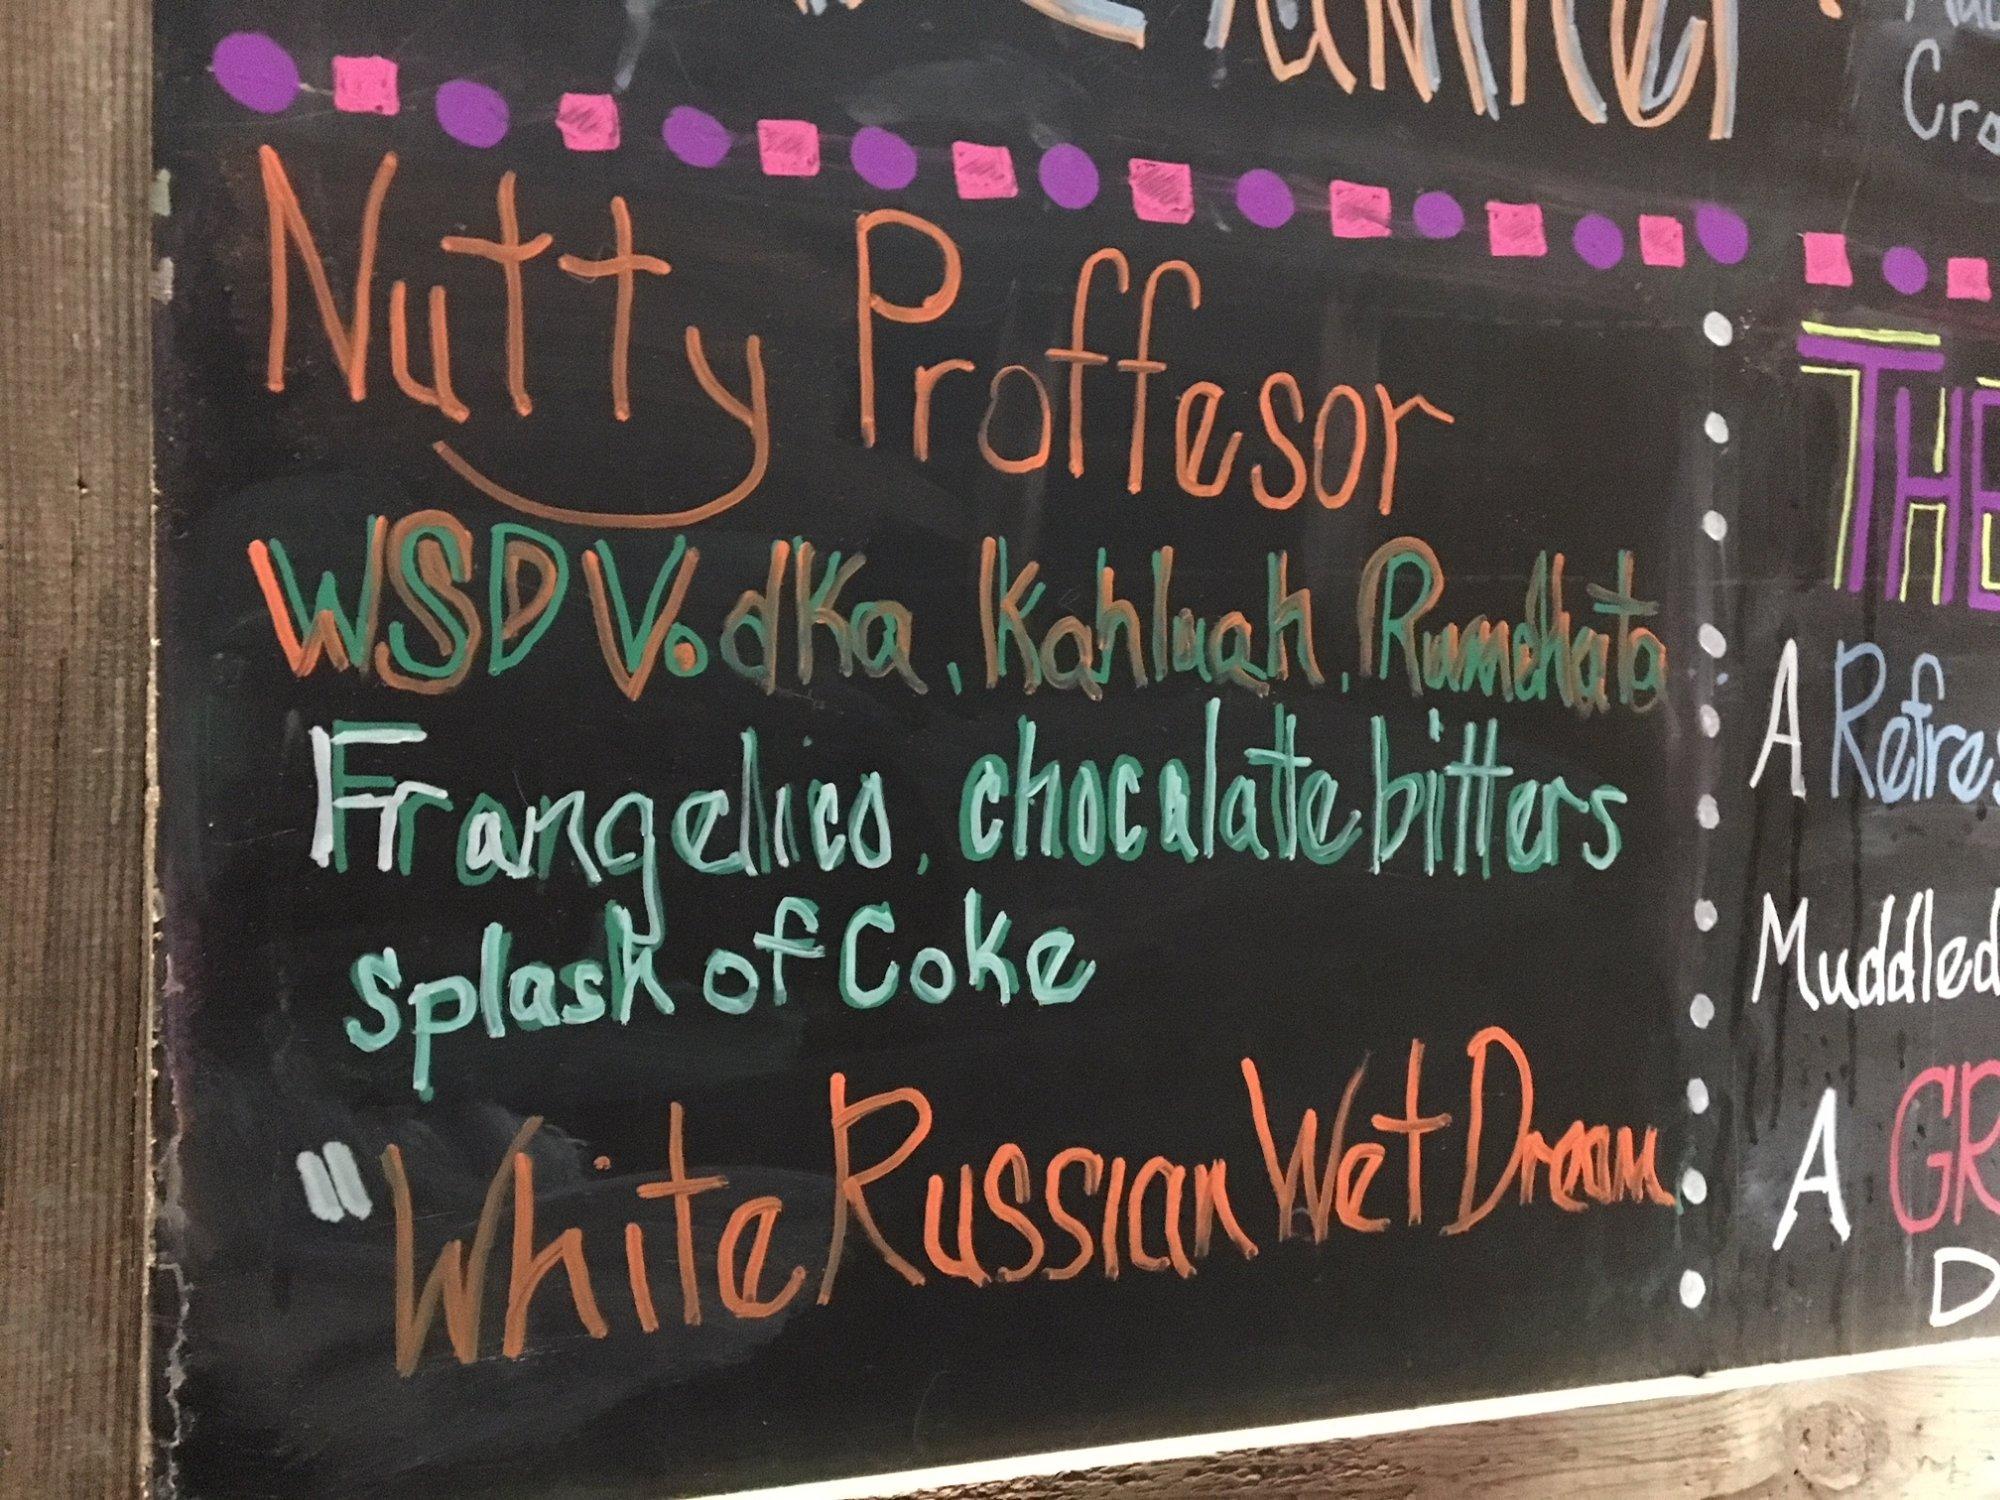 Nutty Proffesor
WSD V.odka, Kahluah, Rumchata
Frangelico, chocalatte bitters
Splash of Coke
"White Russian Wet Dream
THE
A Refres
Muddled
A GR
D
Cra